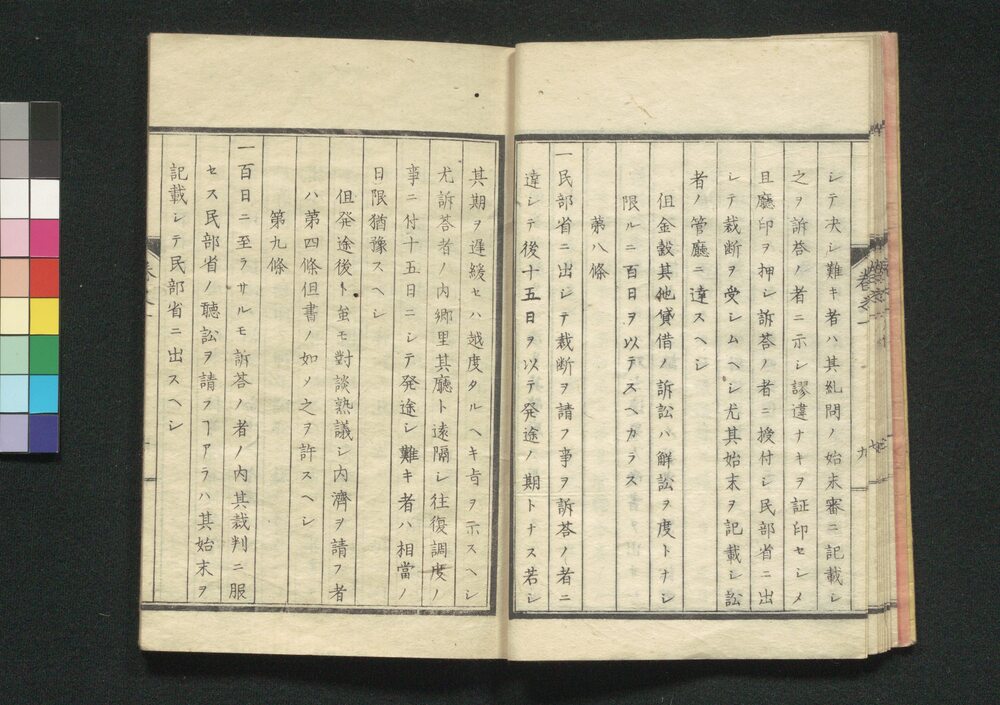 シテ决シ難キ者ハ其糺問ノ始末審ニ記載シ
之ヲ訴答ノ者ニ示シ謬違ナキヲ証印セシメ
且廳印ヲ押シ訴答ノ者ニ授付シ民部省ニ出
シテ裁断ヲ受シムヘシ尤其始末ヲ記載シ訟
者ノ管廳ニ達スヘシ
但金穀其他貸借ノ訴訟ハ解訟ヲ度トナシ
限ルニ百日ヲ以テスヘカラス
第八條
一民部省ニ出シテ裁断ヲ請フ事ヲ訴答ノ者ニ
達シテ後十五日ヲ以テ発途ノ期トナス若シ
其期ヲ遅緩セハ越度タルヘキ㫖ヲ示スヘシ
尤訴答者ノ内郷里其廳ト遠隔シ往復調度ノ
事ニ付十五日ニシテ発途シ難キ者ハ相當ノ
日限猶豫スヘシ
但発途後ト虽モ對談熟議シ内濟ヲ請フ者
ハ第四條但書ノ如メ之ヲ許スヘシ
第九條
一百日ニ至ラサルモ訴答ノ者ノ内其裁判ニ服
セス民部省ノ聴訟ヲ請フヿアラハ其始末ヲ
記載シテ民部省ニ出スヘシ
卷之一
九